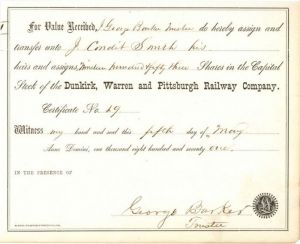 For Value Received, I George Barker Trustee do hereby assign and
transfer unto J. Condit Smith his
heirs and assigns, Nineteen hundred & fifty three Shares in the Capital
Stock of the Dunkirk, Warren and Pittsburgh Railway Company.
Certificate No. 29
Witness my hand and seal this fifth day of May
Anno Domini, one thousand eight hundred and seventy one.
IN THE PRESENCE OF
George Barker
Trustee